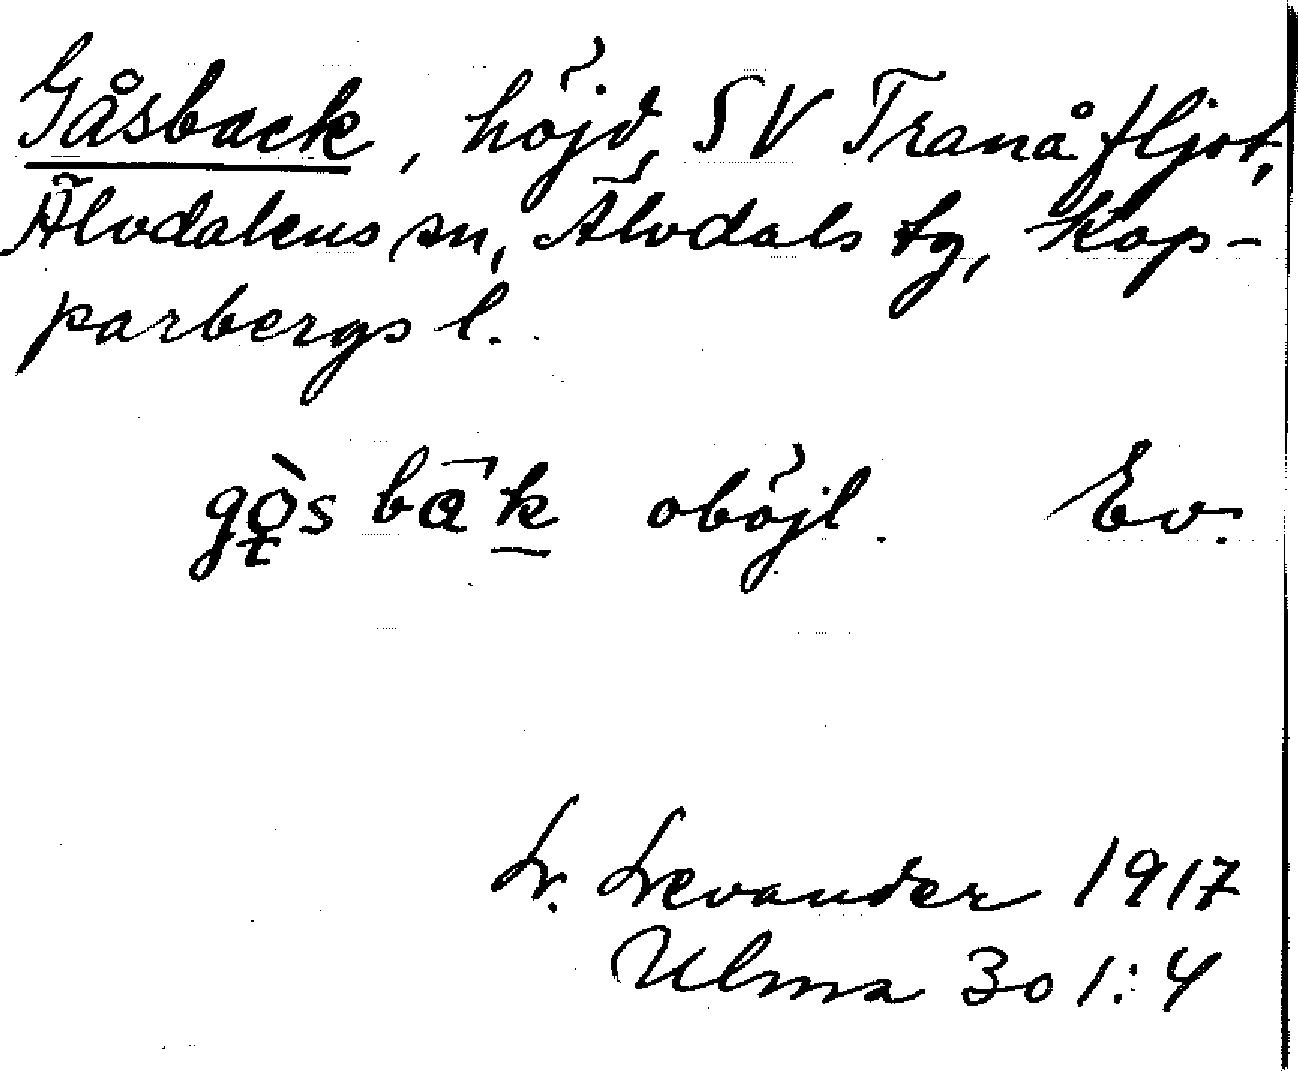 Gåsback, höjd, SV Tranåfljot,
Älvdalens sn, Älvdals tg, Kop-
parbergs l.
gǫ̀s bāk oböjl. Ev.
L. Levander 1917
Ulma 301:4